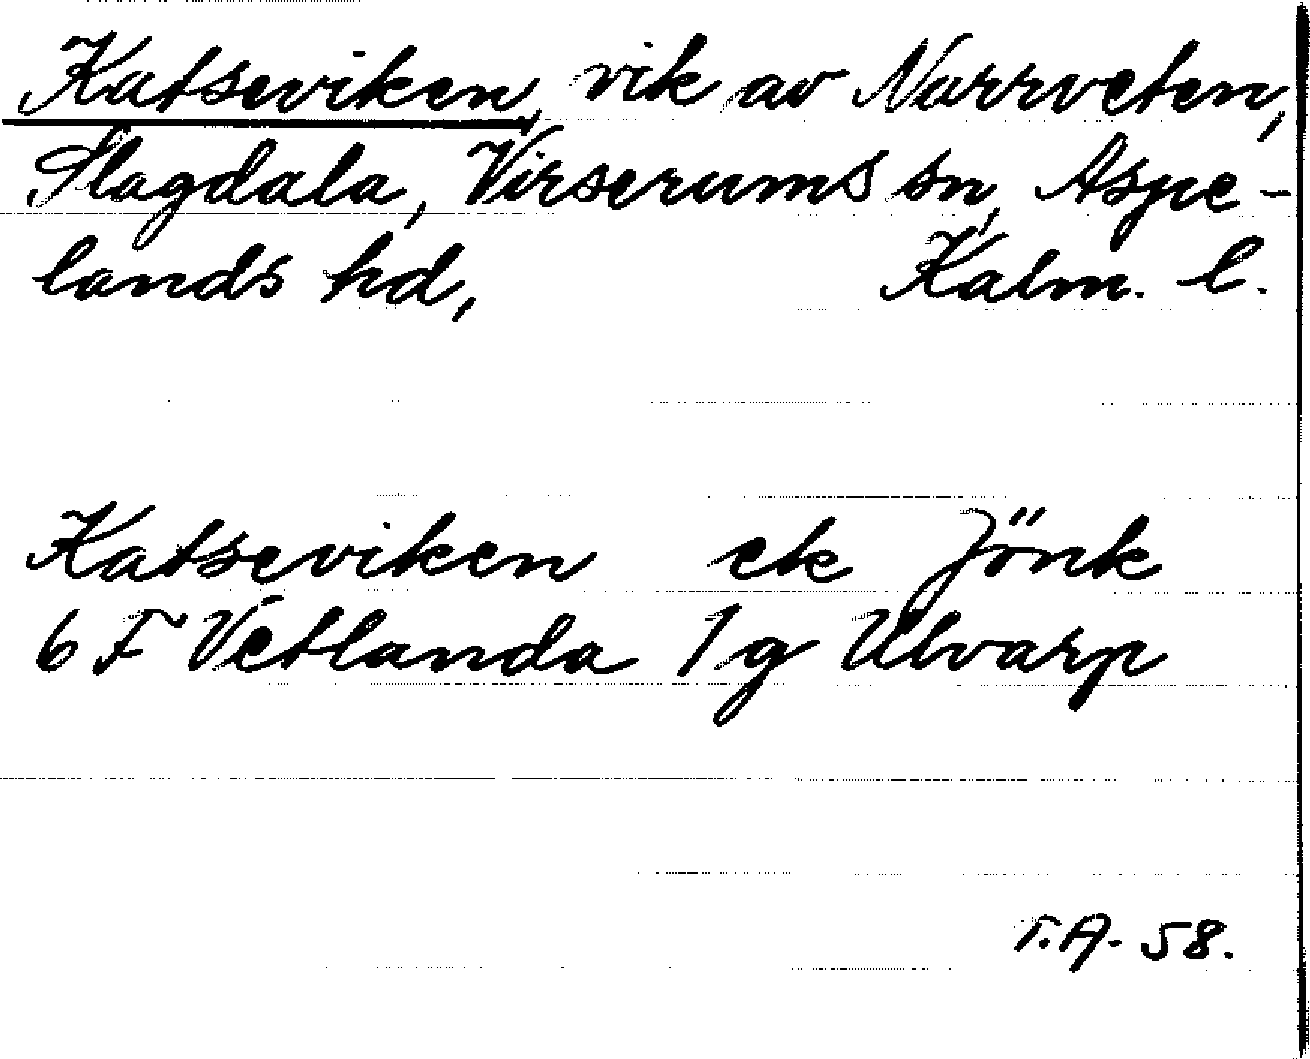 Katseviken, vik av Narrveten,
Slagdala, Virserums sn, Aspe-
lands hd, Kalm. l.
Katseviken ek Jönk
6 F Vetlanda 1g Ulvarp
T.A. 58.